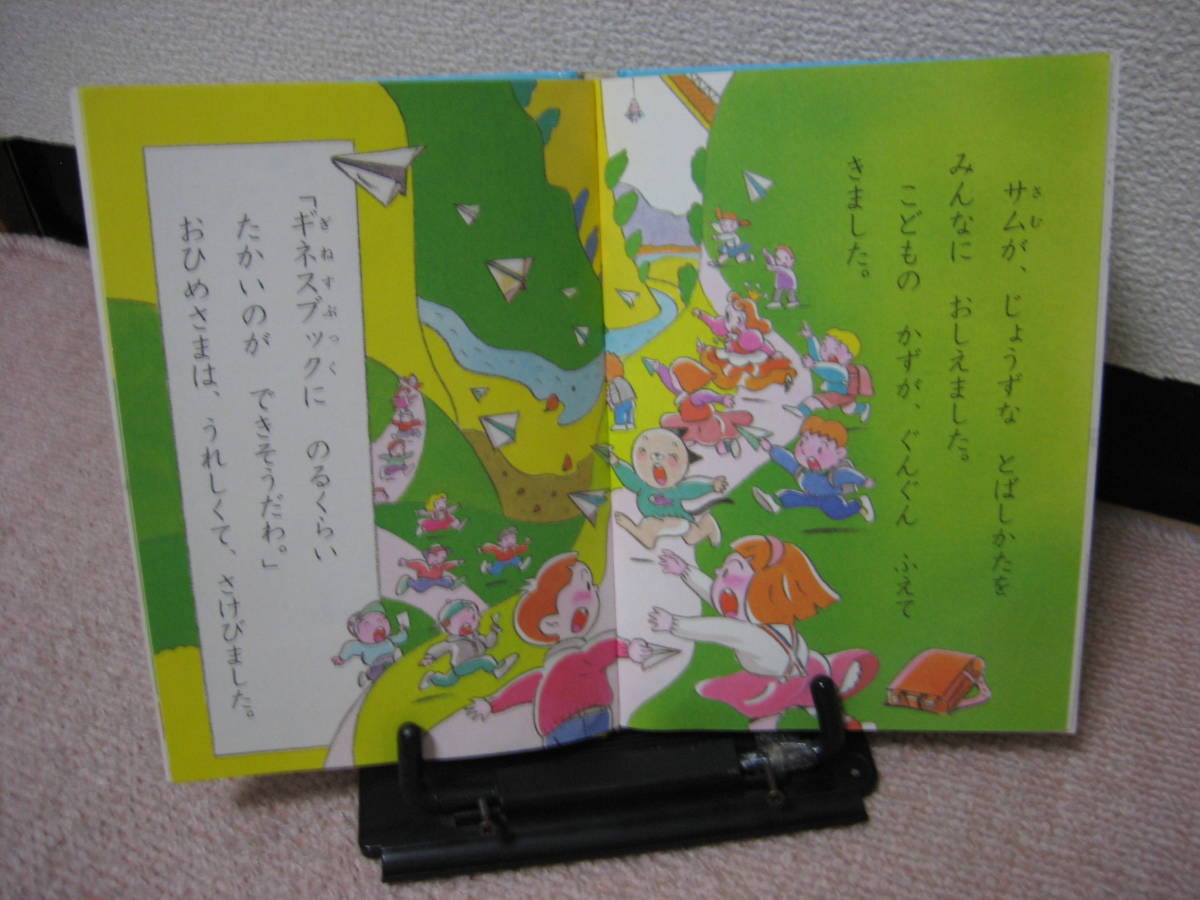 サムが、じょうずな とばしかたを
さむ
みんなに おしえました。
こどもの かずが、ぐんぐん ふえて
きました。
「ギネスブックに のるくらい
ぎねすぶっく
たかいのが できそうだわ。」
おひめさまは、うれしくて、さけびました。